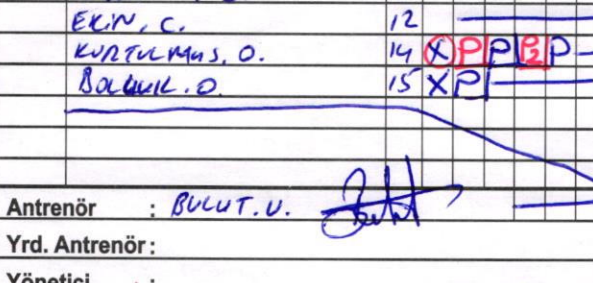 EKİN, C. 12
KURTULMUS, O. 14 X P P P2 P
O. 15 X P
Antrenör : BULUT. U.
Yrd. Antrenör :
Yönetici :